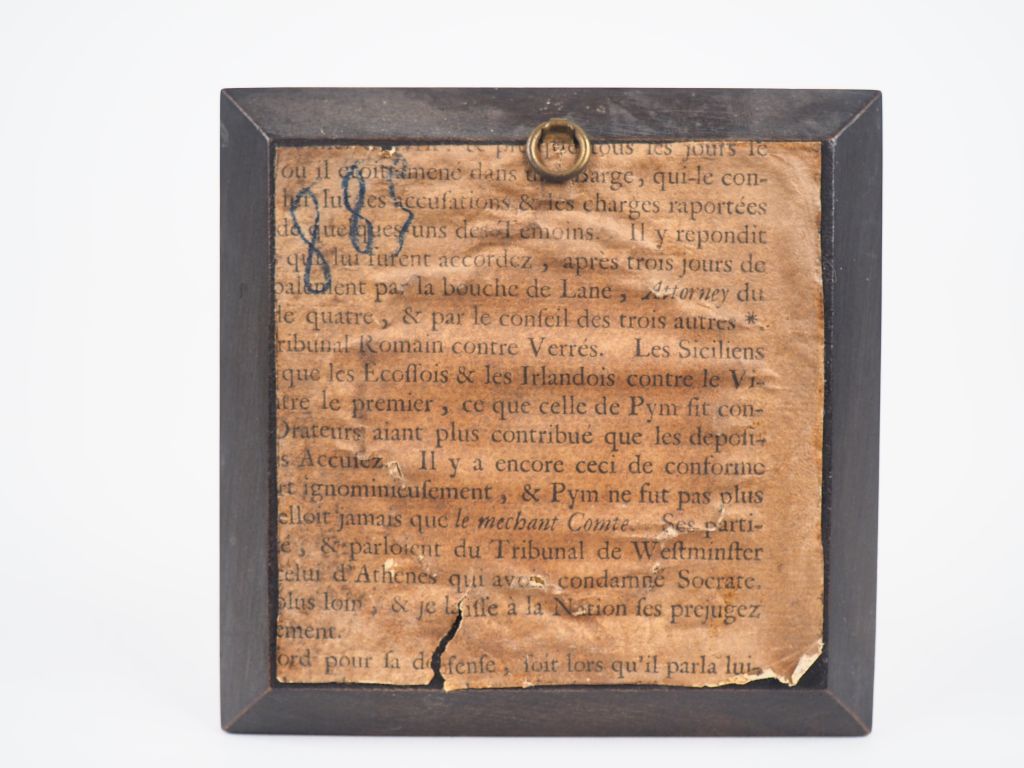 tous les jours se
ou il etoit amené dans une Barge, qui-le con-
lui lut les accusations & les charges raportées
de quelques uns des Temoins. Il y repondit
qui lui furent accordez, apres trois jours de
palement par la bouche de Lane, Attorney du
de quatre, & par le conseil des trois autres *.
ribunal Romain contre Verrés. Les Siciliens
que les Ecossois & les Irlandois contre le Vi-
ntre le premier, ce que celle de Pym fit con-
Orateurs aiant plus contribué que les deposi-
s Accusez. Il y a encore ceci de conforme
rt ignominieusement, & Pym ne fut pas plus
elloit jamais que le mechant Comte. Ses parti-
é, & parloient du Tribunal de Westminster
celui d'Athenes qui avoit condamné Socrate.
plus loin, & je laisse à la Nation ses prejugez
ement.
ord pour sa defense, soit lors qu'il parla lui-
885